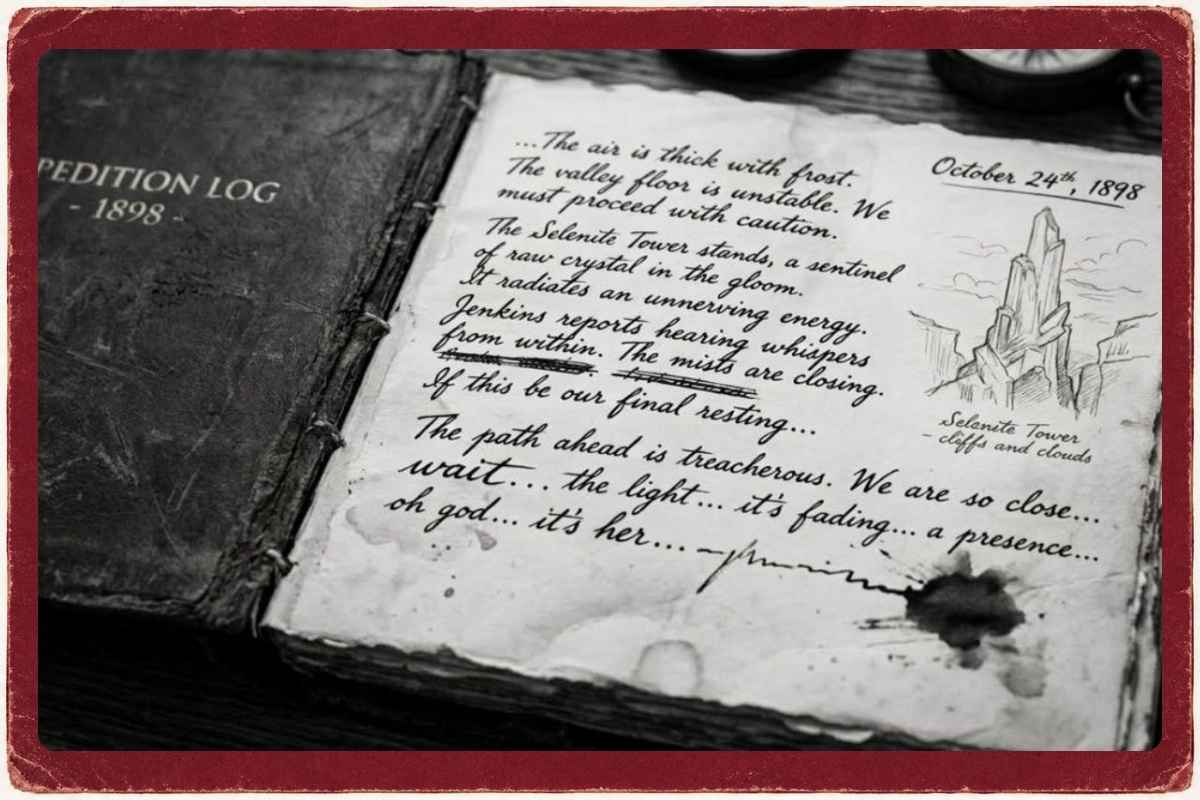 PEDITION LOG
- 1898 -
October 24th, 1898
...The air is thick with frost.
The valley floor is unstable. We
must proceed with caution.
The Selenite Tower stands, a sentinel
of raw crystal in the gloom.
It radiates an unnerving energy.
Jenkins reports hearing whispers
from within. The mists are closing.
If this be our final resting...
The path ahead is treacherous. We are so close...
wait... the light... it's fading... a presence...
oh god... it's her...
Selenite Tower
- cliffs and clouds